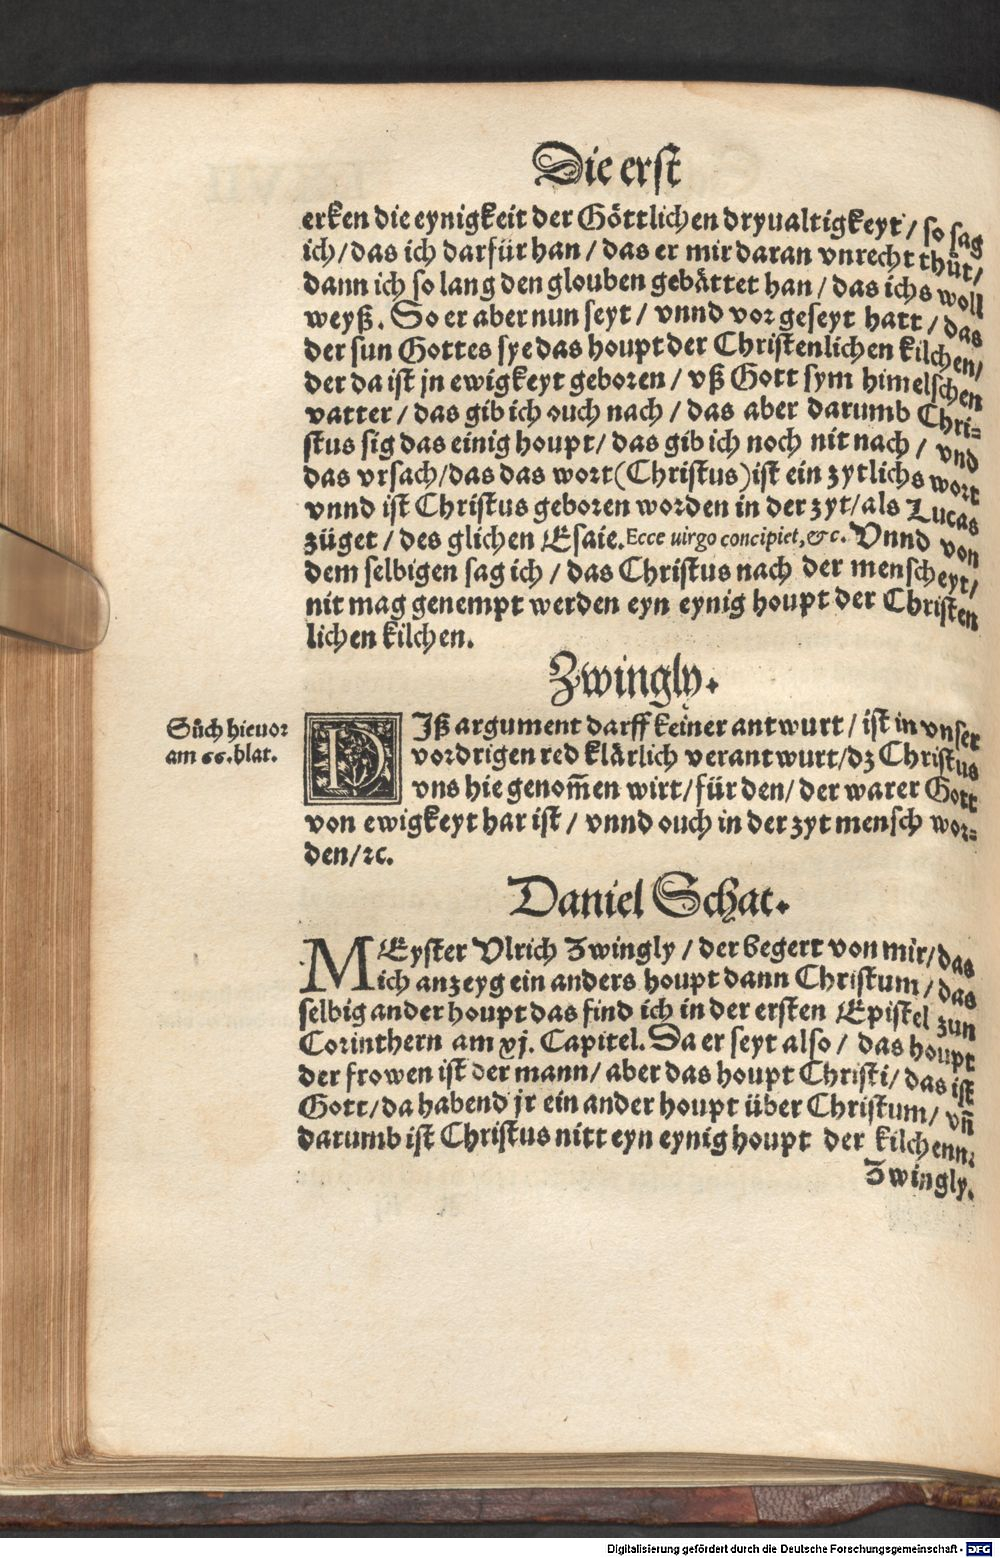 Die erst
erken die eynigkeit der Göttlichen dryualtigkeyt / so sag
ich / das ich darfür han / das er mir daran vnrecht thůt /
dann ich so lang den glouben gebättet han / das ichs woll
weyß. So er aber nun seyt / vnnd vor geseyt hatt / das
der sun Gottes sye das houpt der Christenlichen kilchen /
der da ist jn ewigkeyt geboren / vß Gott sym himelschen
vatter / das gib ich ouch nach / das aber darumb Chri⸗
stus sig das einig houpt / das gib ich noch nit nach / vnd
das vrsach / das das wort (Christus) ist ein zytlichs wort
vnnd ist Christus geboren worden in der zyt / als Lucas
züget / des glichen Esaie. Ecce uirgo concipiet, &c. Vnnd von
dem selbigen sag ich / das Christus nach der menscheyt /
nit mag genempt werden eyn eynig houpt der Christen
lichen kilchen.
Zwingly.
Sůch hieuor
am 66. blat.
DIß argument darff keiner antwurt / ist in vnser
vordrigen red klärlich verantwurt / dz Christus
vns hie genom̄en wirt / für den / der warer Gott
von ewigkeyt har ist / vnnd ouch in der zyt mensch wor⸗
den / ꝛc.
Daniel Schat.
MEyster Vlrich Zwingly / der begert von mir / das
ich anzeyg ein anders houpt dann Christum / das
selbig ander houpt das find ich in der ersten Epistel zun
Corinthern am xj. Capitel. Da er seyt also / das houpt
der frowen ist der mann / aber das houpt Christi / das ist
Gott / da habend jr ein ander houpt über Christum / vn̄
darumb ist Christus nitt eyn eynig houpt der kilchenn.
Zwingly.
Digitalisierung gefördert durch die Deutsche Forschungsgemeinschaft - DFG